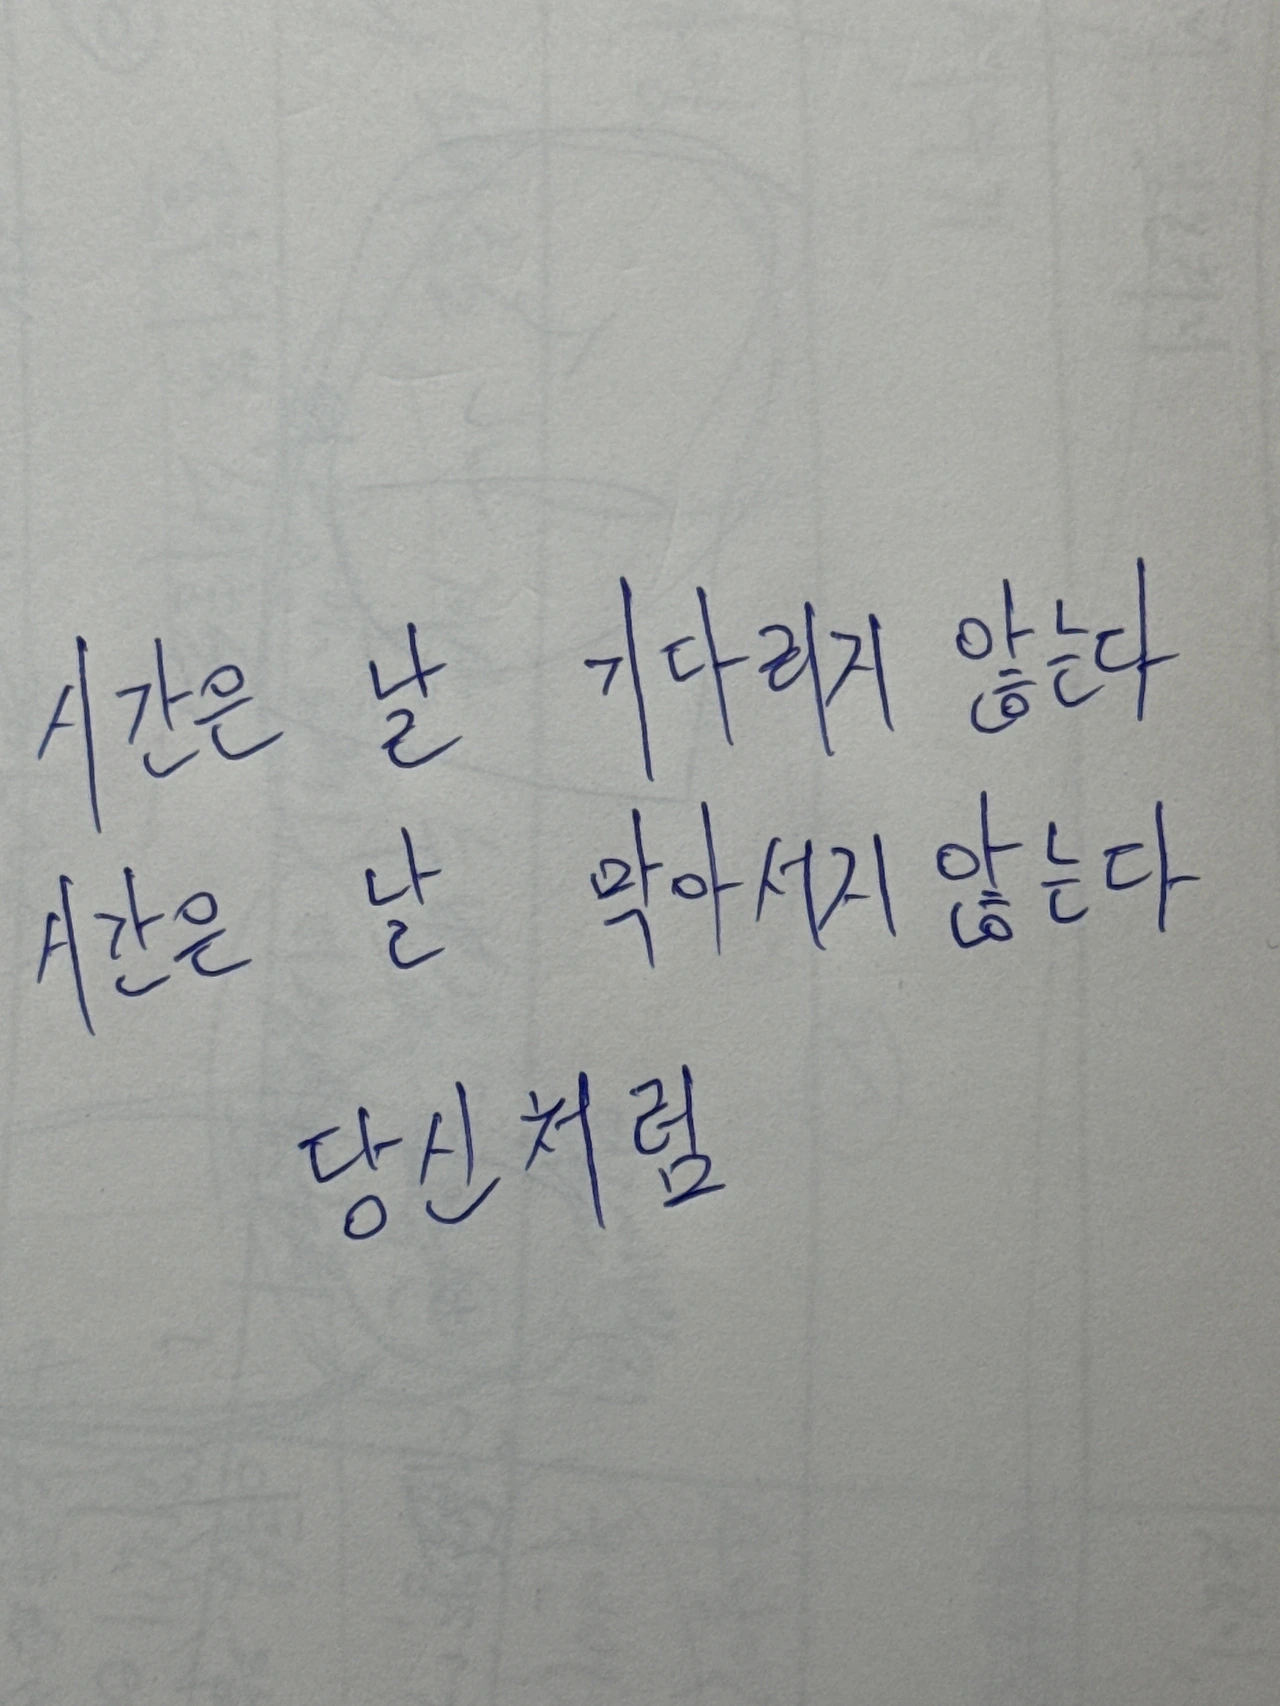 시간은 날 기다리지 않는다
시간은 날 막아서지 않는다
당신처럼